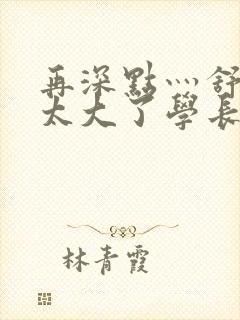 再深點灬舒
太大了學長
林青霞